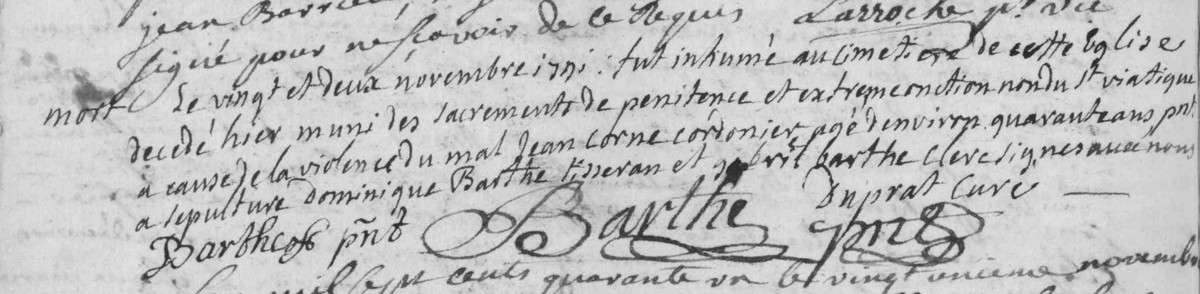 jean
signé pour ne scavoir de ce Requis Larroche pr. vic
mort Le vingt et deux novembre 1741 : fut inhumé au cimetiere de cette Eglise
decedé hier muni des sacrements de penitence et extremeonction non du st viatique
a cause de la violence du mal jean Corne cordonier agé denviron quarante ans pnt
a sepulture dominique Barthe tisseran et gabriel barthe clerc signes avec nous
Barthe pnt Barthe pnt Duprat Curé
mil sept cents quarante un le vingt unieme novembre